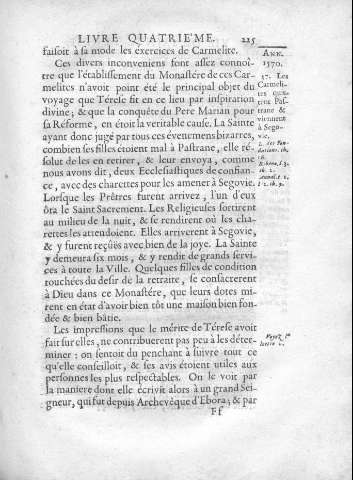 LIVRE QUATRIE'ME. 225
faisoit à sa mode les exercices de Carmelite.
Ces divers inconveniens font assez connoî-
tre que l'établissement du Monastére de ces Car-
melites n'avoit point été le principal objet du
voyage que Térese fit en ce lieu par inspiration
divine; & que la conquête du Pere Marian pour
sa Réforme, en étoit la veritable cause. La Sainte
ayant donc jugé par tous ces évenemens bizarres,
combien ses filles étoient mal à Pastrane, elle ré-
solut de les en retirer, & leur envoya, comme
nous avons dit, deux Ecclesiastiques de confian-
ce, avec des charettes pour les amener à Segovie.
Lorsque les Prêtres furent arrivez, l'un d'eux
ôta le Saint Sacrement. Les Religieuses sortirent
au milieu de la nuit, & se rendirent où les cha-
rettes les attendoient. Elles arriverent à Segovie,
& y furent reçuës avec bien de la joye. La Sainte
y demeura six mois, & y rendit de grands servi-
ces à toute la Ville. Quelques filles de condition
touchées du desir de la retraite, se consacrerent
à Dieu dans ce Monastére, que leurs dotes mi-
rent en état d'avoir bien tôt une maison bien fon-
dée & bien bâtie.
Les impressions que le mérite de Térese avoit
fait sur elles, ne contribuerent pas peu à les déter-
miner: on sentoit du penchant à suivre tout ce
qu'elle conseilloit, & ses avis étoient utiles aux
personnes les plus respectables. On le voit par
la maniere dont elle écrivit alors à un grand Sei-
gneur, qui fut depuis Archevêque d'Ebora; & par
Ff
ANN.
1570.
37. Les
Carmeli-
tes
Pas-
trane &
viennent
à Sego-
vie.